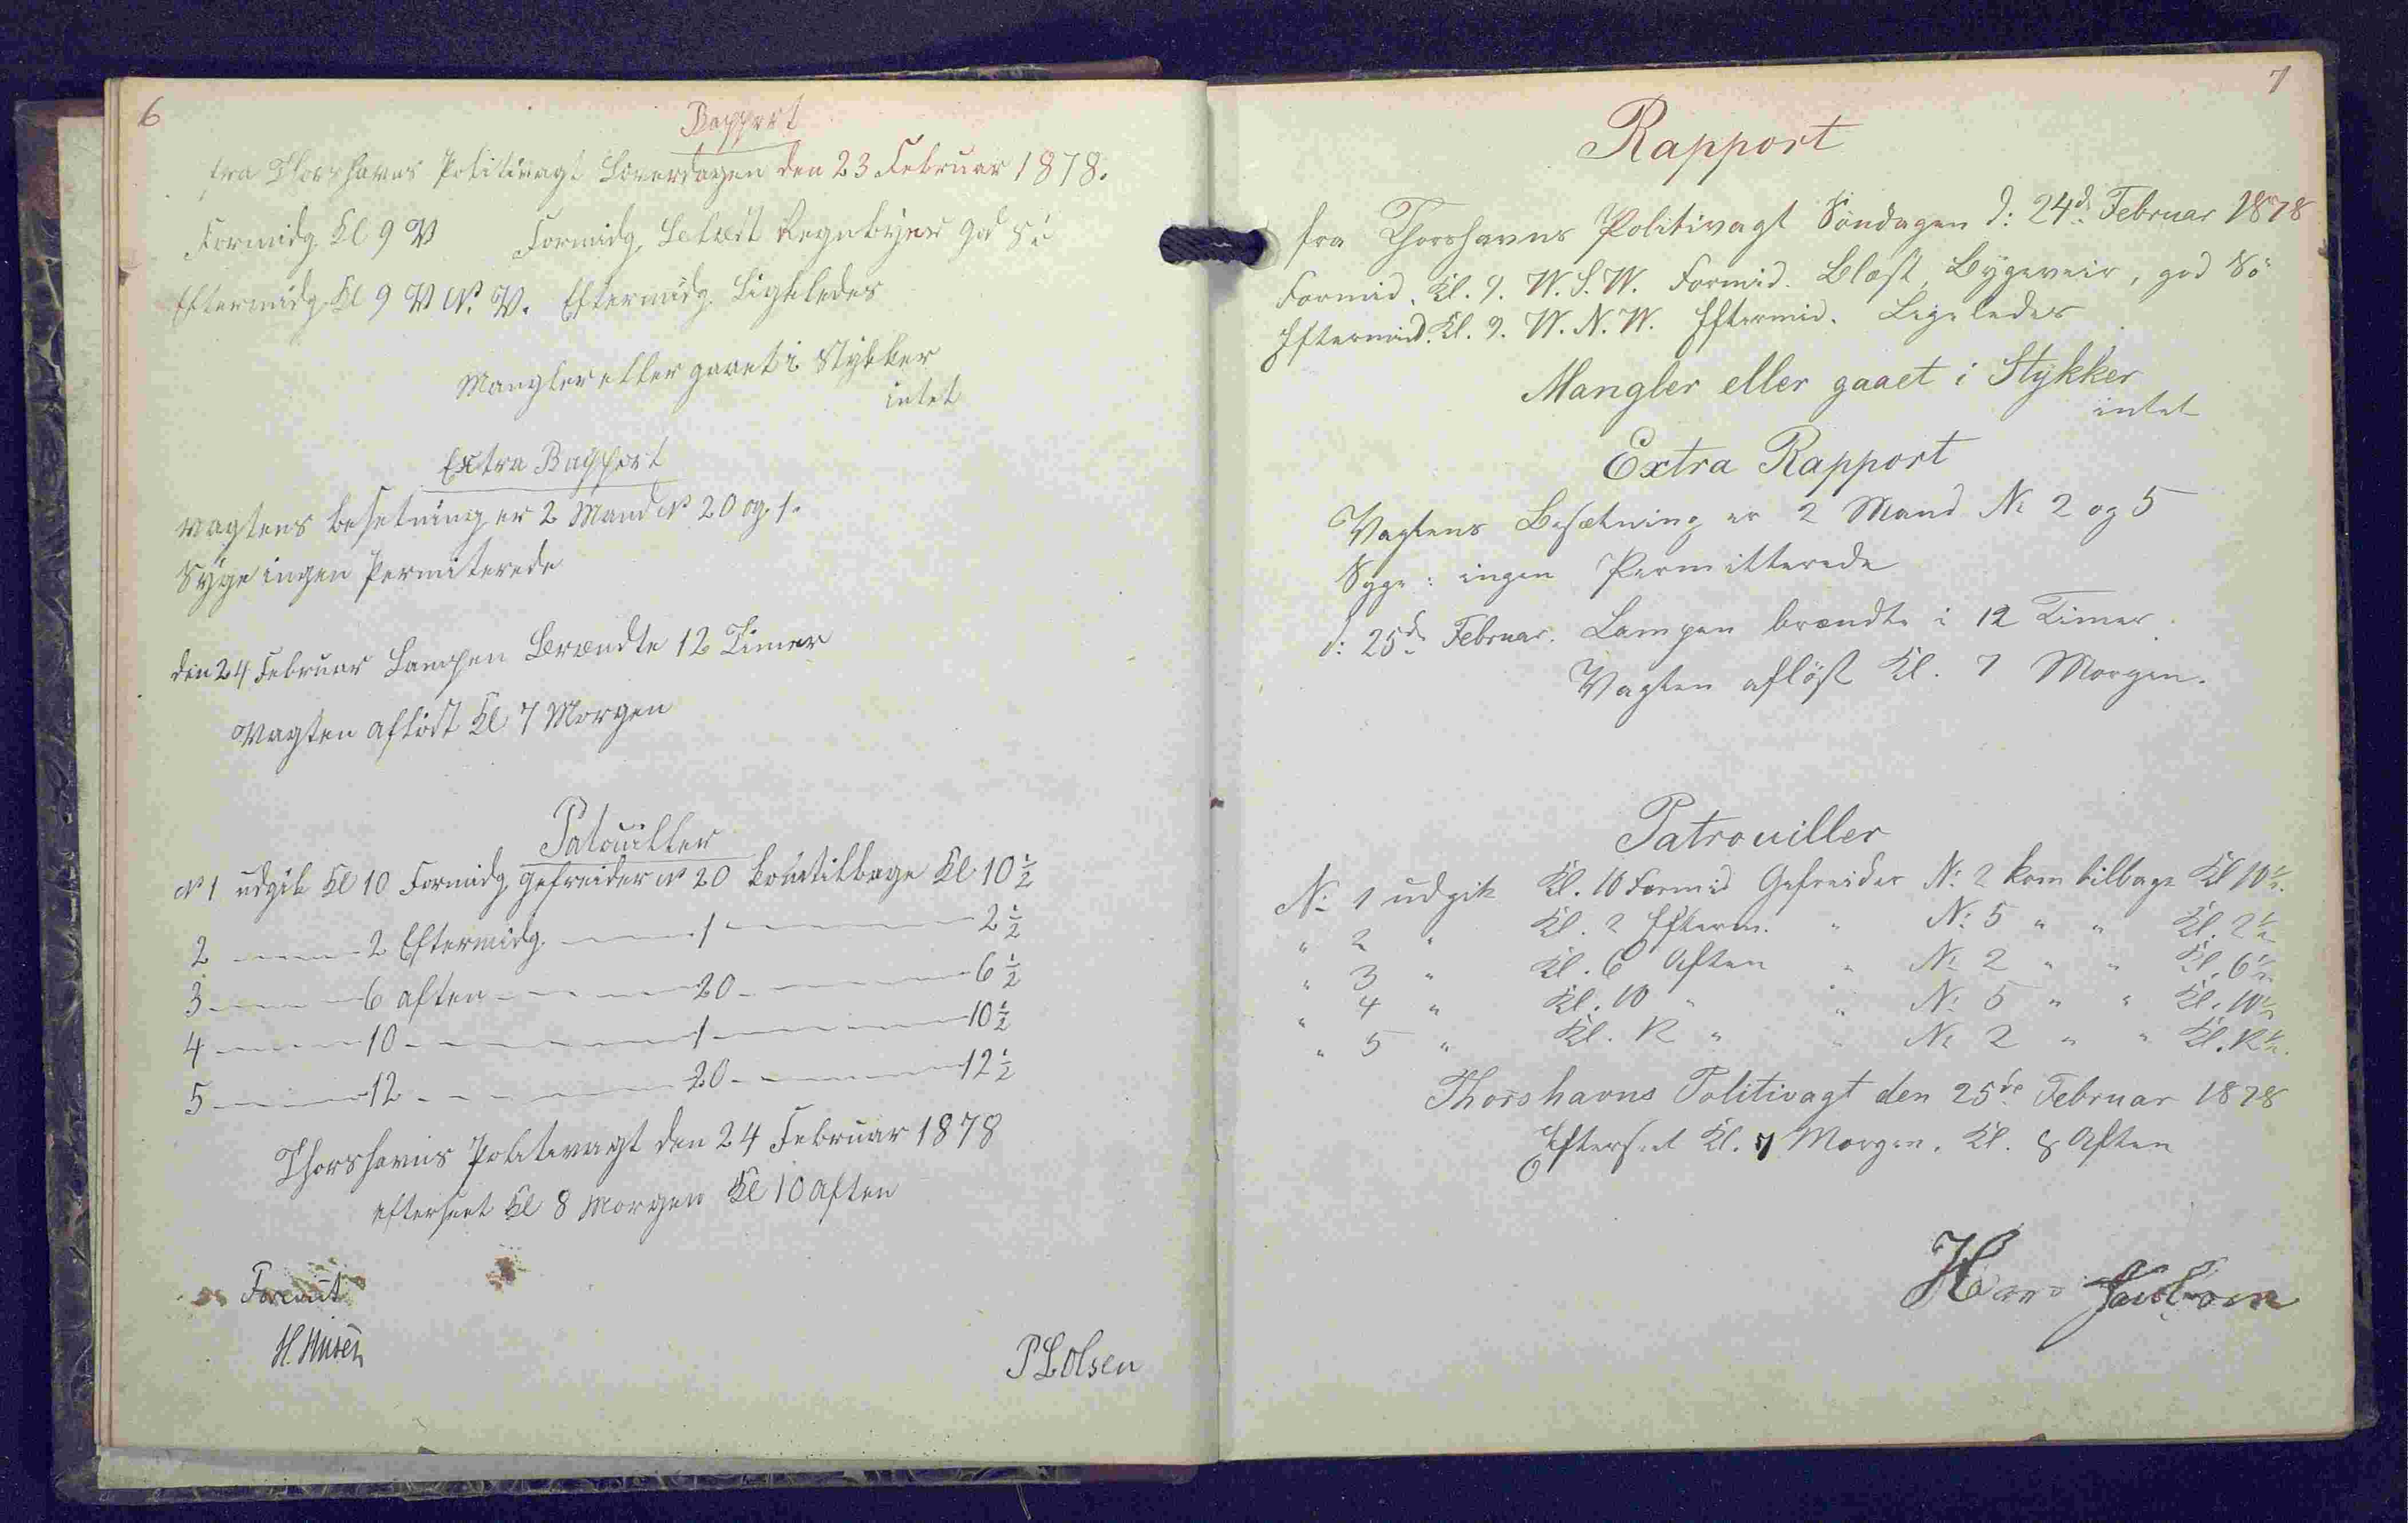 6
Rapport
fra Thorshavns Politivagt Löverdagen den 23 Februar 1878.
Formidg Kl 9 V Formidg. Regnbyer god Sö
Eftermidg Kl 9 V N. V. Eftermidg. Ligeledes
Mangler eller gaaet i Stykker
intet
Extra Rapport
Vagtens besetning er 2 Mand N 20 og 1.
Syge ingen Permiterede
den 24 Februar Lampen Brændte 12 Timer
Vagten aflöst Kl 7 Morgen
Patouiller
N 1 udgik Kl 10 Formidg gefreider N 20 kom tilbage Kl 10 1/2
2 — 2 Eftermidg. — 1 — 2 1/2
3 — 6 aften — 20 — 6 1/2
4 — 10 — 1 — 10 1/2
5 — 12 — 20 — 12 1/2
Thorshavns Politivagt den 24 Februar 1878
efterseet Kl 8 Morgen Kl 10 Aften
P L Olsen
7
Rapport
fra Thorshavns Politivagt Söndagen d: 24de Februar 1878
Formid. Kl. 9. W. S. W. Formid. Blæst, Bygeveir, god Sö
Eftermid. Kl. 9. W. N. W. Eftermid. Ligeledes
Mangler eller gaaet i Stykker
intet
Extra Rapport
Vagtens Besætning er 2 Mand No 2 og 5
Syge: ingen Permitterede
d: 25de Februar. Lampen brændte i 12 Timer.
Vagten aflöst Kl. 7 Morgen.
Patrouiller
No 1 udgik Kl. 10 Formid Gefreider No 2 kom tilbage Kl 10 1/2.
" 2 " Kl. 2 Efterm. " No 5 " " Kl. 2 1/2
" 3 " Kl. 6 Aften " No 2 " " Kl. 6 1/2
" 4 " Kl. 10 " " No 5 " " Kl. 10 1/2
" 5 " Kl. 12 " " No 2 " " Kl. 12 1/2.
Thorshavns Politivagt den 25de Februar 1878
Efterseet Kl. 7 Morgen. Kl. 8 Aften
Hans Jacobsen